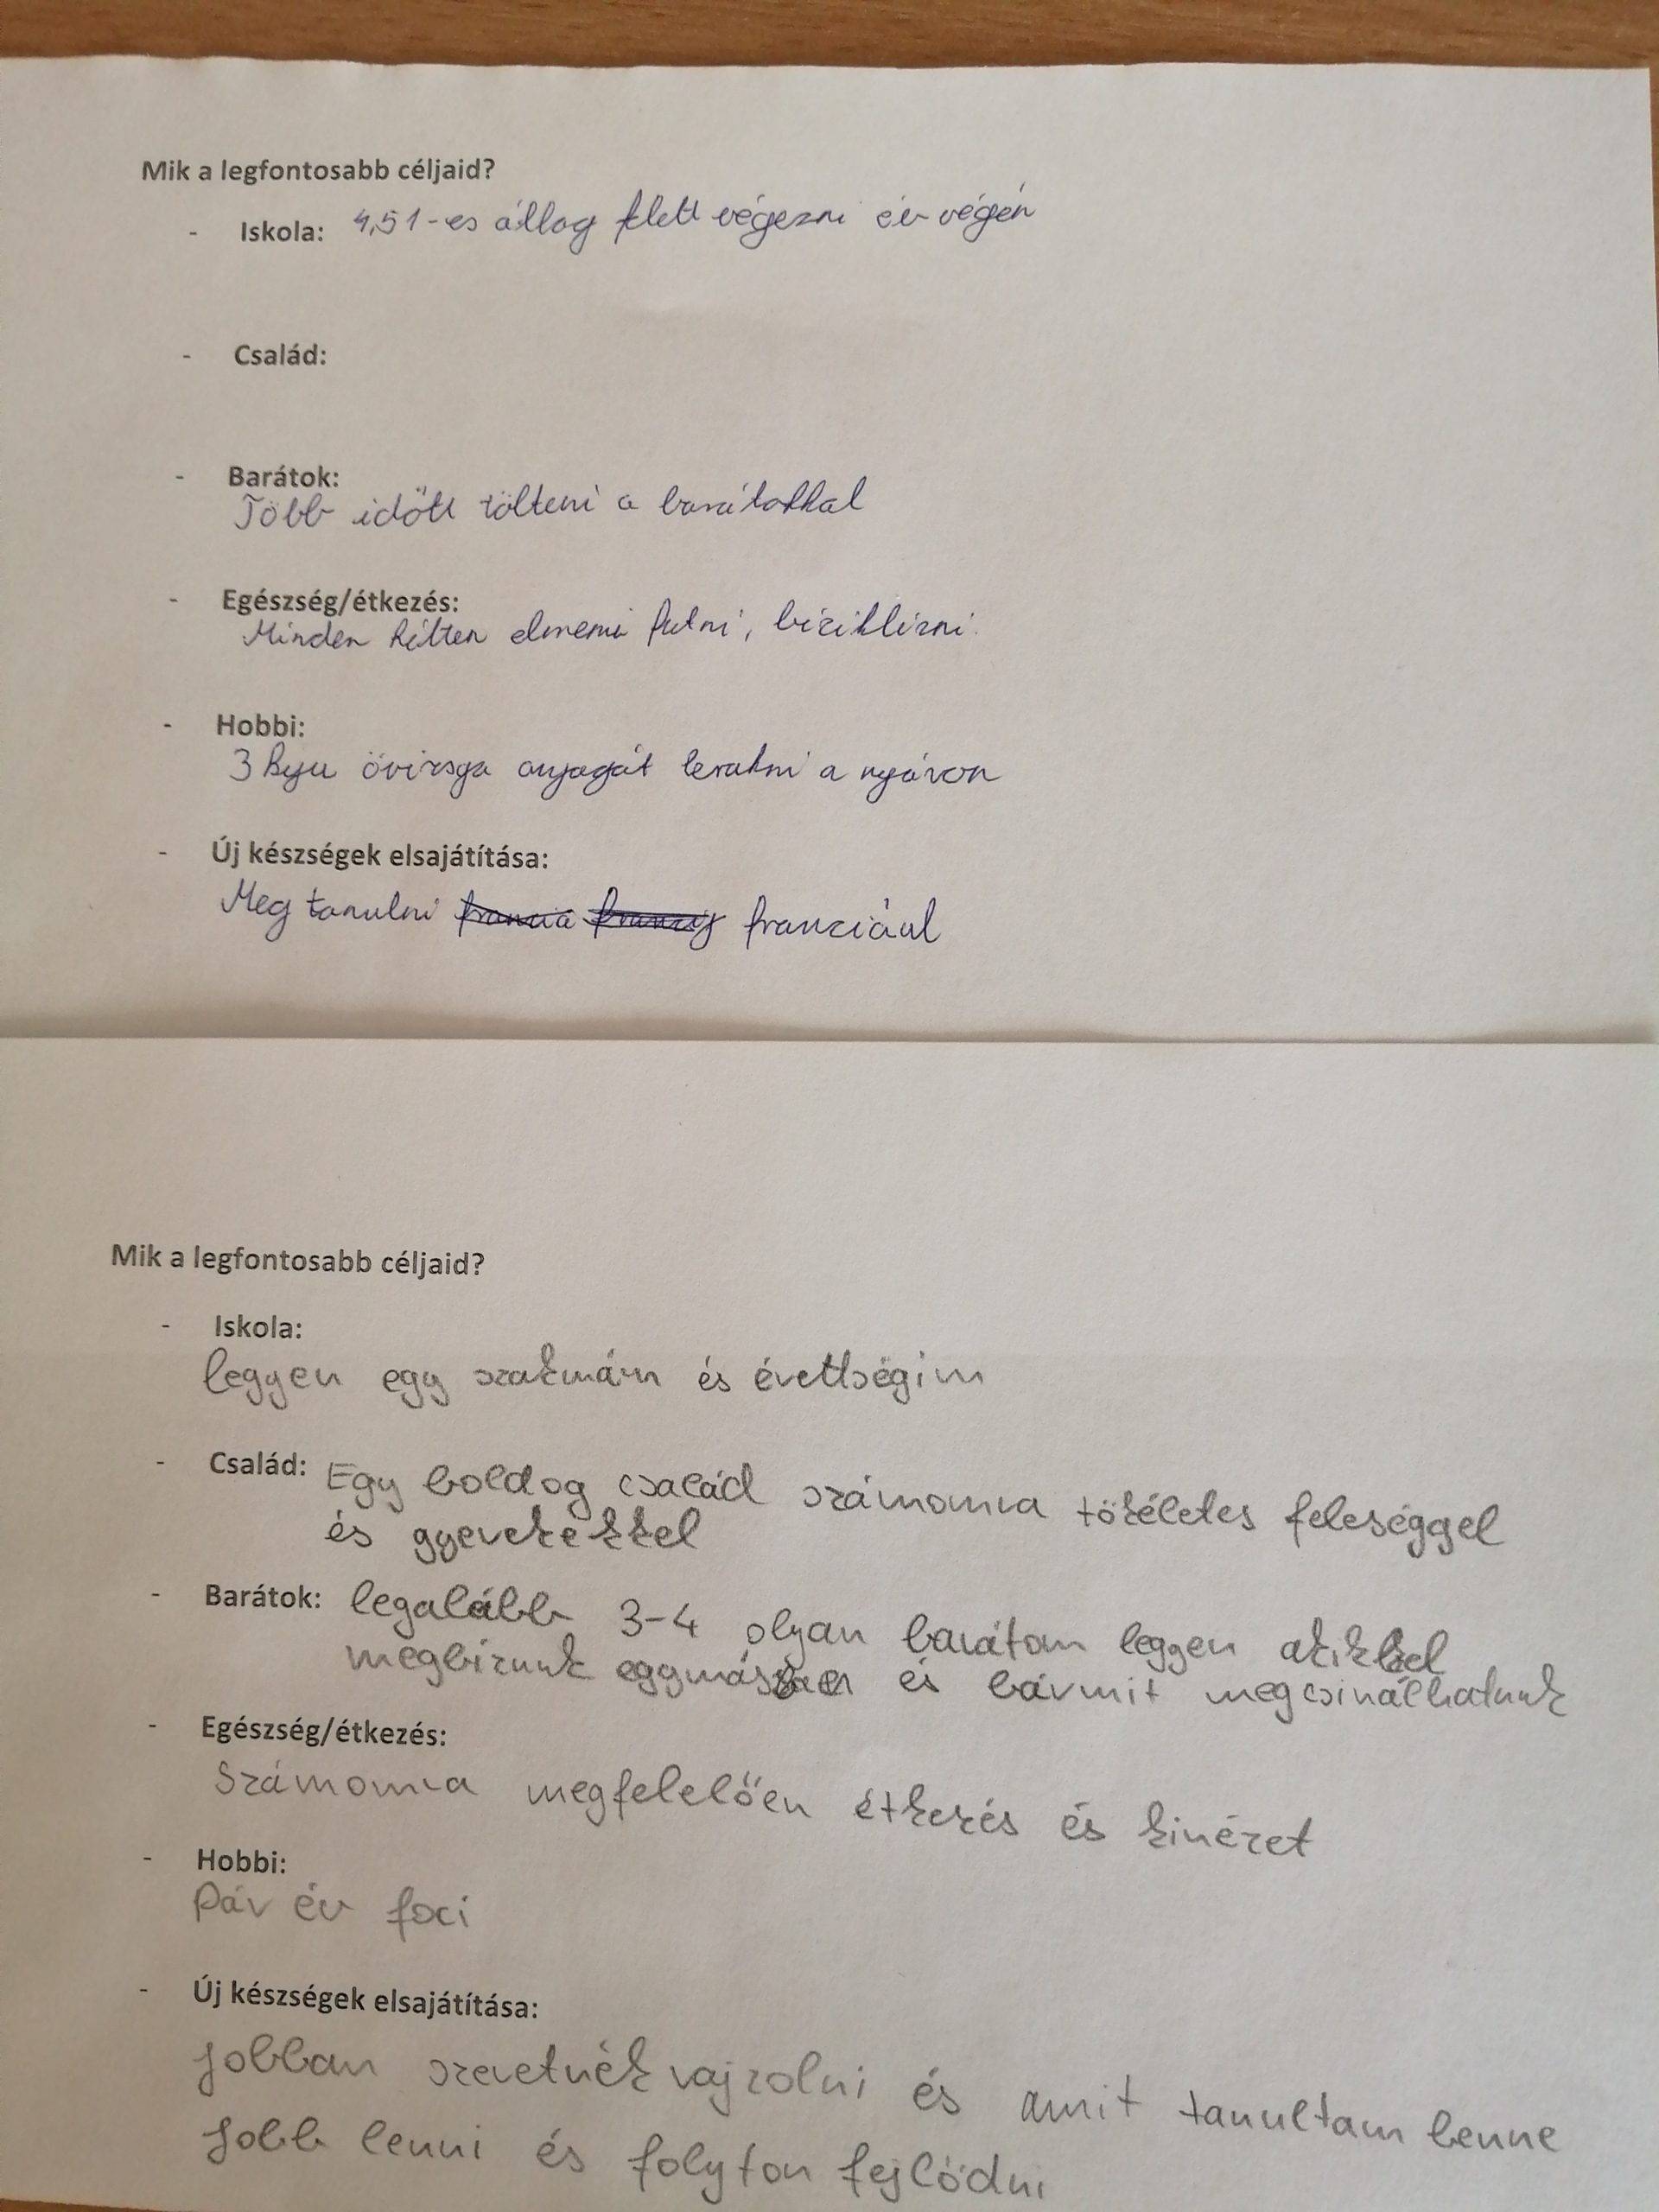 Mik a legfontosabb céljaid?
- Iskola: 4,51-es átlag felett végezni év végén
- Család:
- Barátok:
Több időtt tölteni a barátokkal
- Egészség/étkezés:
Minden héten elmenni futni, biciklizni.
- Hobbi:
3 kyu övvizsga anyagát lerakni a nyáron
- Új készségek elsajátítása:
Meg tanulni francia franciáúl
Mik a legfontosabb céljaid?
- Iskola:
legyen egy szakmám és érettségim
- Család: Egy boldog család számomra tökéletes feleséggel
és gyerekekkel
- Barátok: legalább 3-4 olyan barátom legyen akikkel
megbízunk egymásban és bármit megcsinálhatunk
- Egészség/étkezés:
Számomra megfelelően étkezés és kinézet
- Hobbi:
Pár év foci
- Új készségek elsajátítása:
Jobban szeretnék rajzolni és amit tanultam benne
Jobb lenni és folyton fejlődni